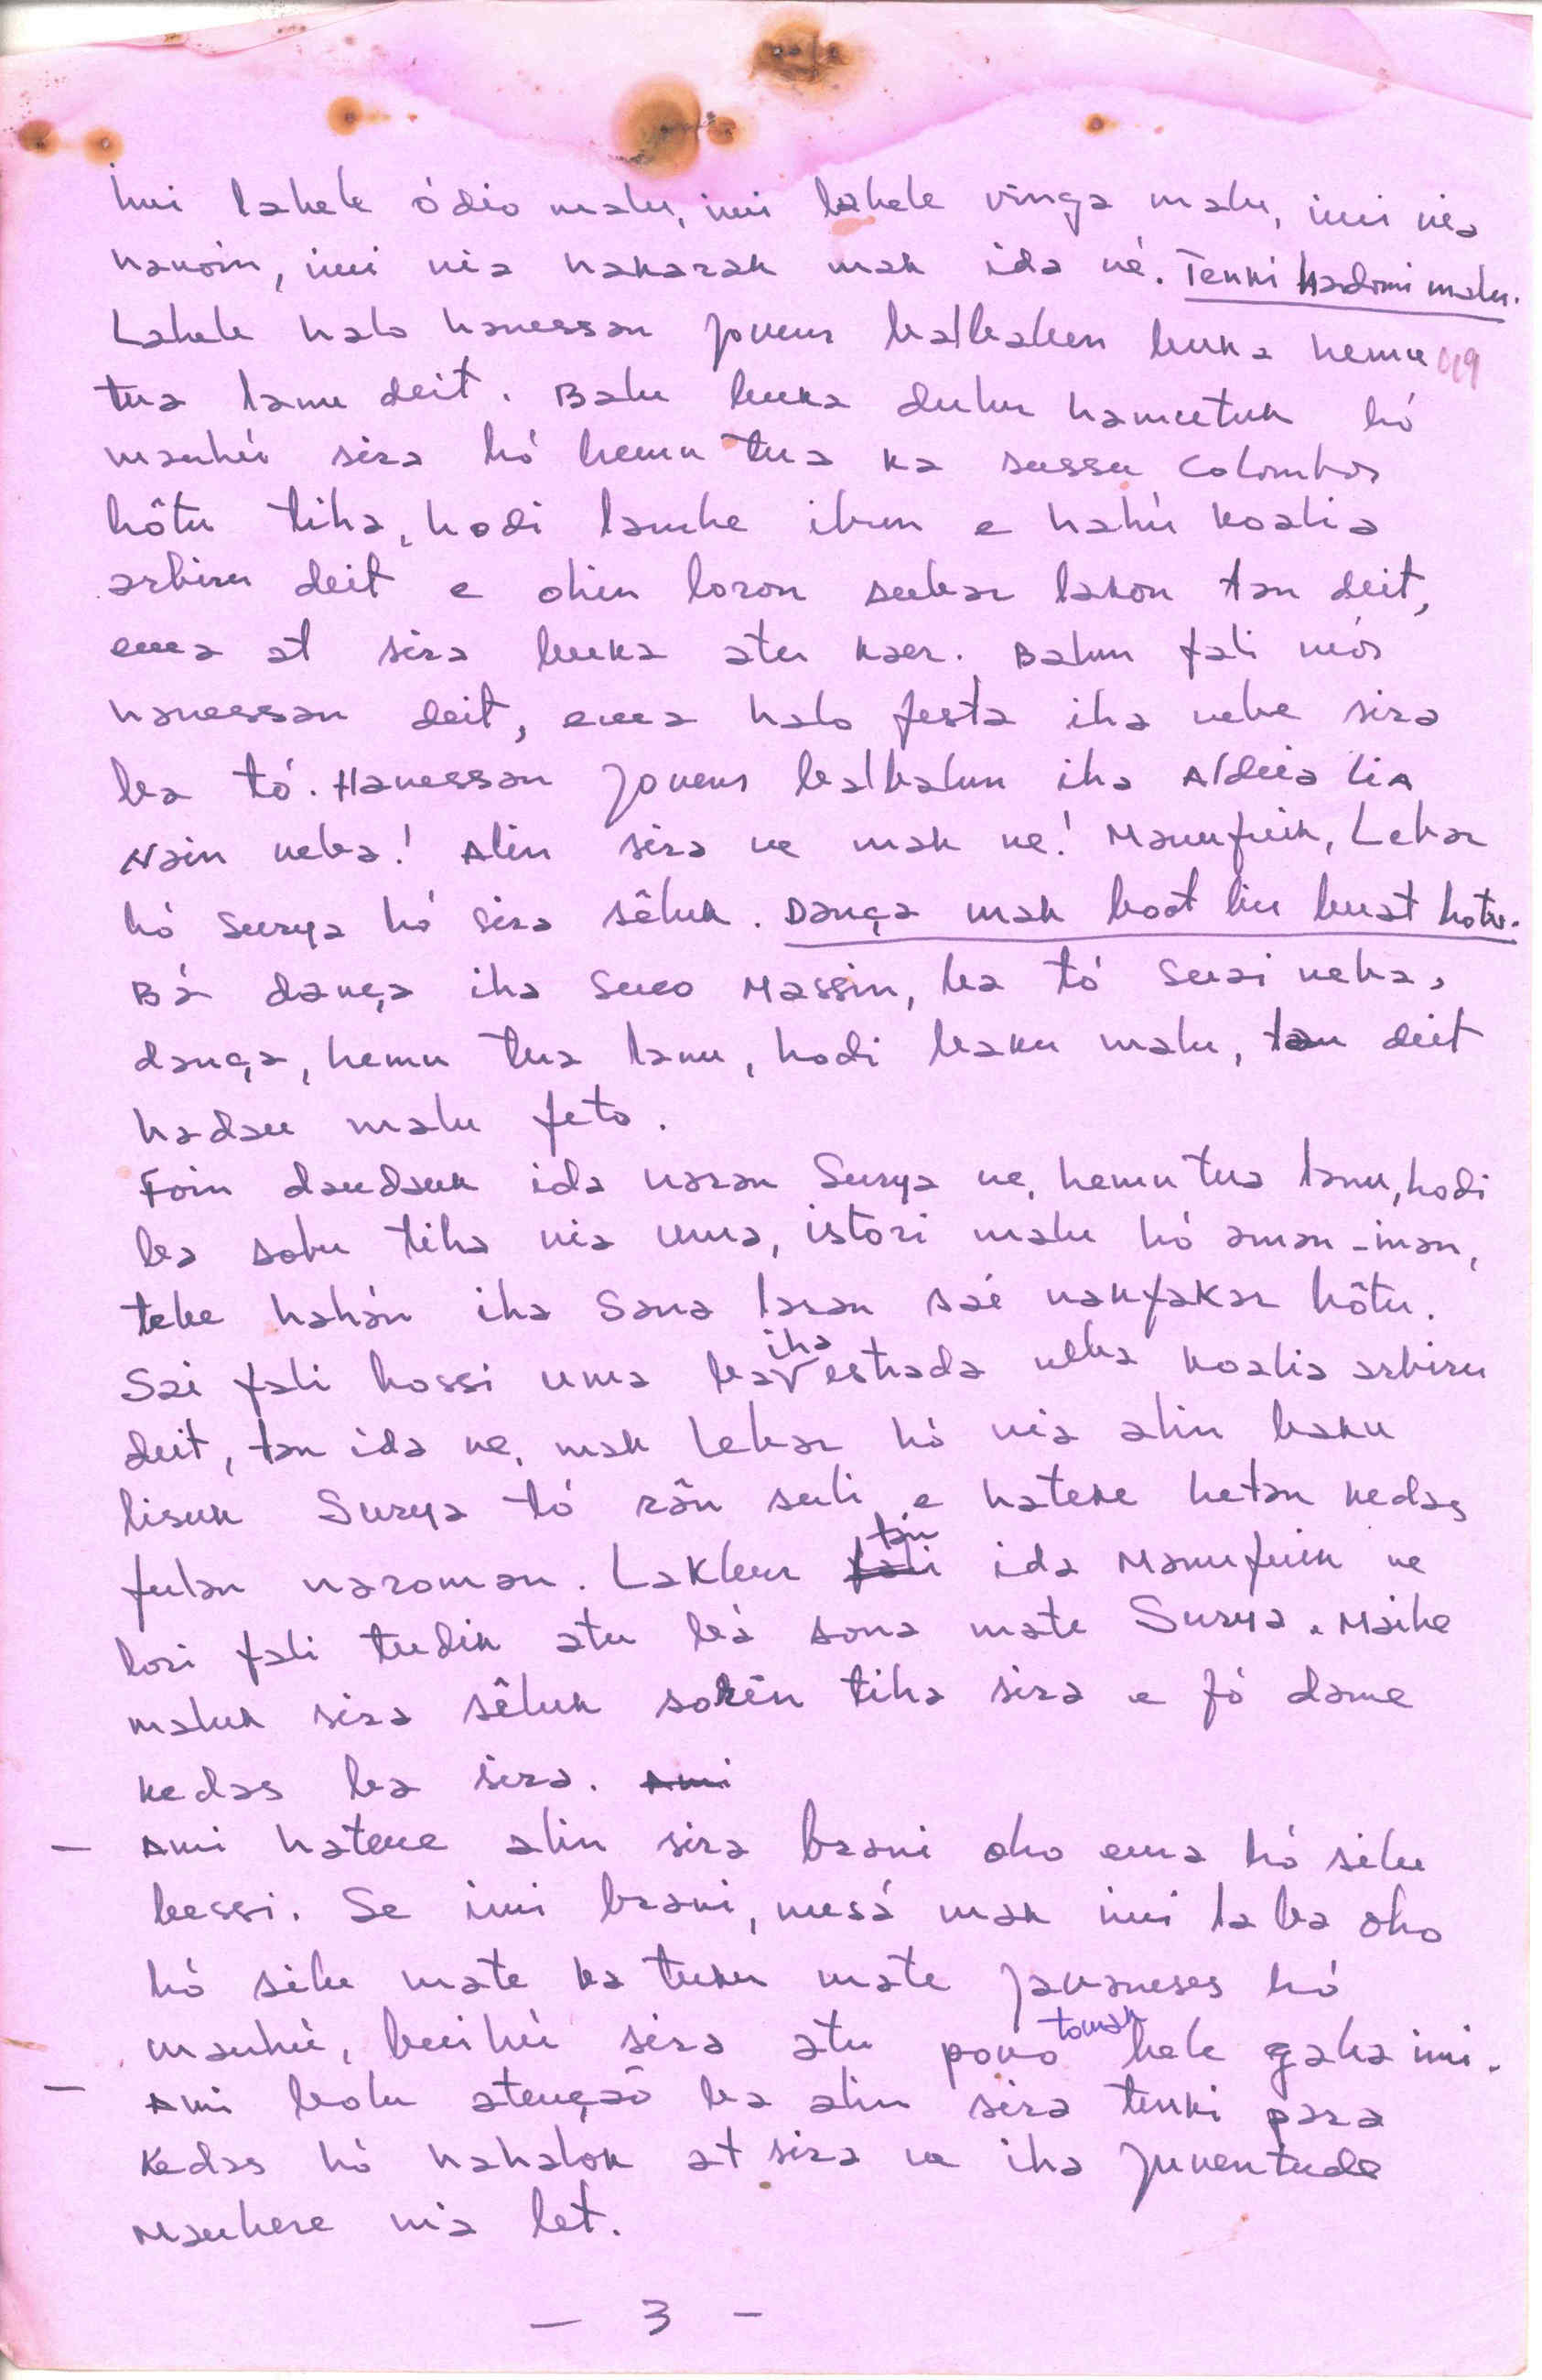 Imi labele ódio malu, imi labele vinga malu, imi nia
hanoin, imi nia hakarak mak ida né. Tenki hadomi malu.
Labele halo hanessan jovens balbalun buka hemu 49
tua lanu deit. Balu buka dulur hamutuk hó
mauhú sira hó hemu tua ka sussu Colombos
hôtu tiha, hodi lambe ibun e hahú koalia
arbiru deit e ohin loron subar lakon tan deit,
ema at sira buka atu kaer. Balun fali mós
hanessan deit, ema halo festa iha nebe sira
ba tó. Hanessan jovens balbalun iha Aldeia Lia
Nain neba! Alin sira ne mak ne! Manufuik, Lebar
hó Surya hó sira sêluk. Dança mak boot liu buat hotu.
Bá dança iha Suco Massin, ba tó Suai neba,
dança, hemu tua lanu, hodi baku malu, tan deit
hadau malu feto.
Foin daudauk ida naran Surya ne, hemu tua lanu, hodi
ba sobu tiha nia uma, istori malu hó aman-inan,
tebe hahán iha Sana laran saé nakfakar hôtu.
Sai fali hossi uma ba iha estrada neba koalia arbiru
deit, tan ida ne, mak Lebar hó nia alin baku
lisuk Surya tó rân suli e hateke hetan kedas
fulan naroman. Lakleur fali tán ida Manufuik ne
lori fali tudik atu bá sona mate Surya. Maibe
maluk sira sêluk sokên tiha sira e fó dame
kedas ba sira. Ami
— Ami hatene alin sira brani oho ema hó silu
bessi. Se imi brani, nusá mak imi la ba oho
hó silu mate ka tuku mate javaneses hó
mauhú, buihú sira atu povo tomak bele gaba imi.
— Ami bolu atenção ba alin sira tenki para
kedas hó hahalok at sira ne iha juventude
Maubere nia let.
— 3 —